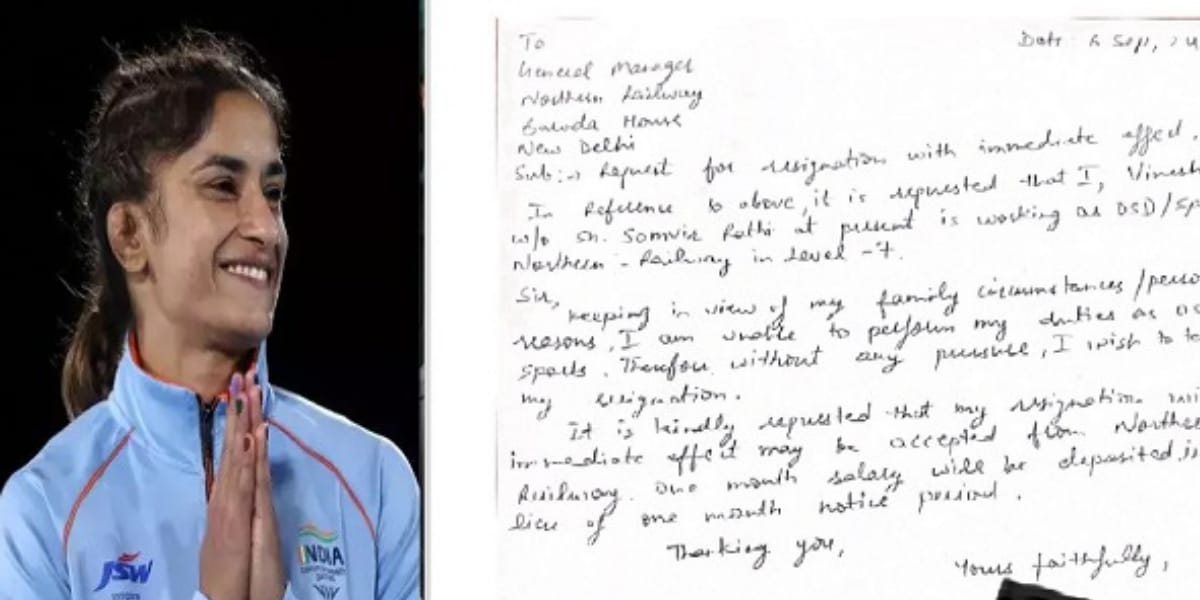 To
Date: 6 Sep, 24
General Manager
Northern Railway
Baroda House
New Delhi
Sub:→ Request for resignation with immediate effect.
In Reference to above, it is requested that I, Vinesh
w/o Sh. Somvir Rathi at present is working as OSD/Sp
Northern - Railway in Level -7.
Sir,
Keeping in view of my family circumstances/perso
reasons, I am unable to perform my duties as OS
sports. Therefore without any pressure, I wish to te
my resignation.
It is kindly requested that my resignation wi
immediate effect may be accepted from Northe
Railway. One month salary will be deposited in
lieu of one month notice period.
Thanking you,
Yours faithfully,
JSW
INDIA